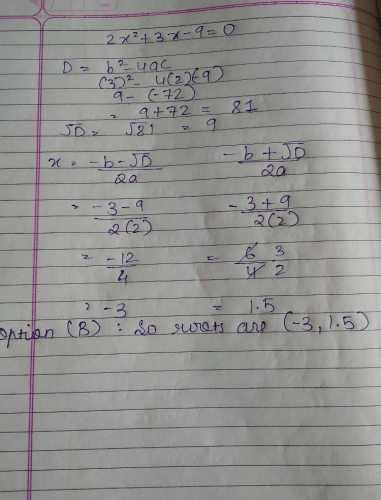 2x²+3x-9=0
D = b²-4ac
(3)²-4(2)(-9)
9-(-72)
= 9+72 = 81
√D = √81 = 9
x = -b-√D/2a -b+√D/2a
= -3-9/2(2) -3+9/2(2)
= -12/4 = 6/4 3/2
= -3 = 1.5
option (B) : So roots are (-3, 1.5)